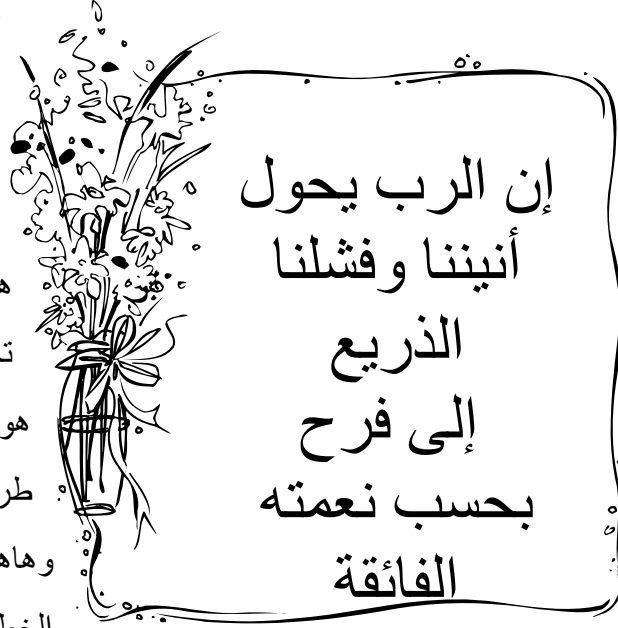 إن الرب يحول
أنيننا وفشلنا
الذريع
إلى فرح
بحسب نعمته
الفائقة
هو